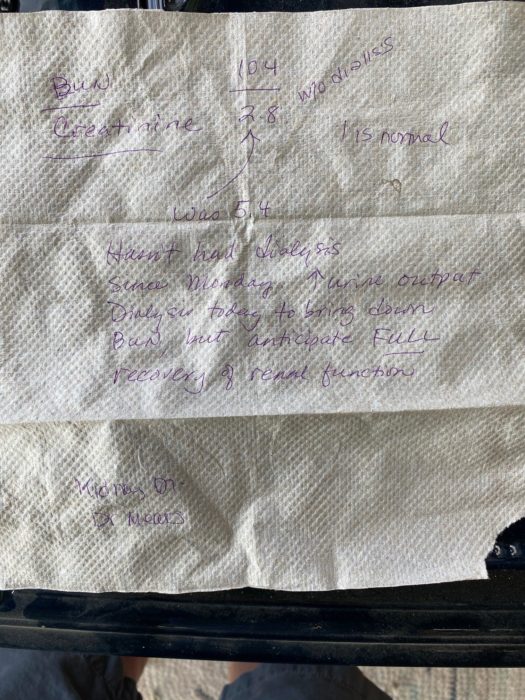 BUN 104
Creatinine 2.8 w/o dialisis
1 is normal
was 5.4
Hasn't had dialysis
since Monday. ↑ urine output
Dialysis today to bring down
BUN, but anticipate FULL
recovery of renal function
Kidney Dr.
Dr Mears